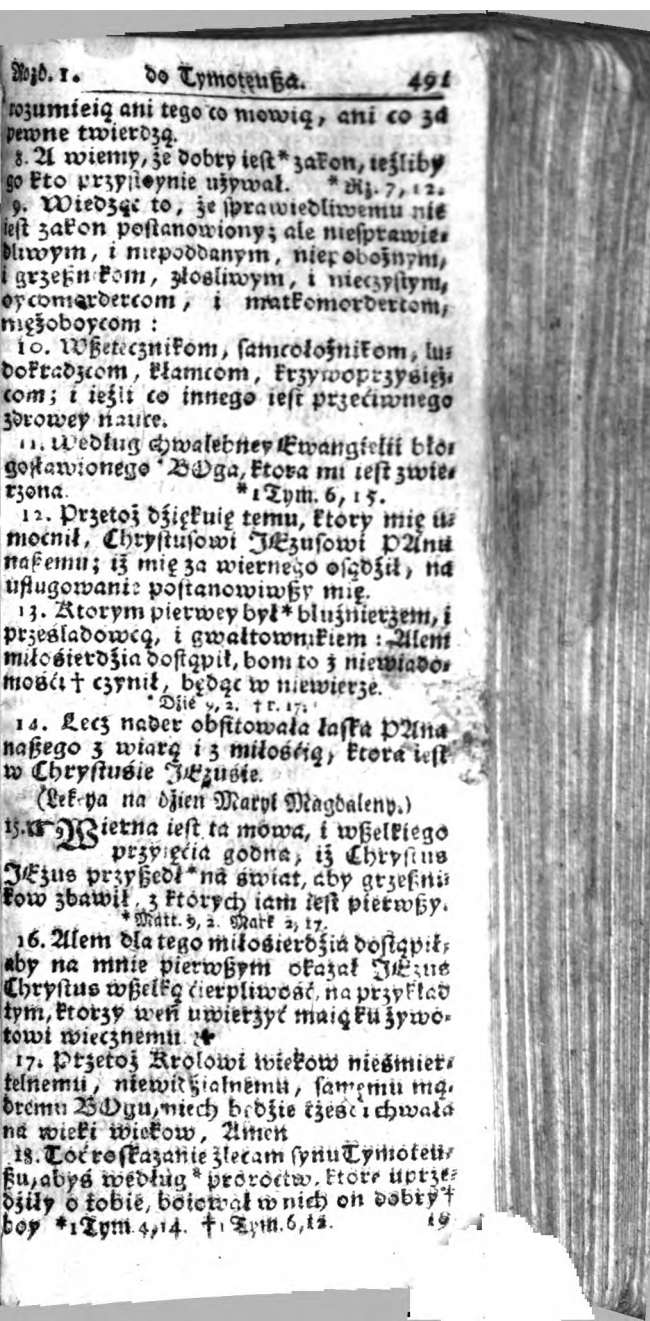 Rozd. 1. do Tymoteußa. 491
rozumieią ani tego co mowią, ani co zá
pewne twierdzą.
8. A wiemy, że dobry iest * zakon, ieżliby
go kto przystoynie używał. * Rz. 7, 12.
9. Wiedząc to, że sprawiedliwemu nie
iest zakon postanowiony; ale niesprawie-
dliwym, i niepoddanym, niepobożnym,
i grzeßnikom, złosliwym, i nieczystym,
oycomordercom, i matkomordercom,
mężoboycom:
10. Wßetecznikom, samcołożnikom, lu-
dokradzcom, kłamcom, krzywoprzysięż-
com; i ieżli co innego iest przećiwnego
zdrowey nauce.
11. Według chwalebney Ewangielii bło-
gosławionego * BOga, ktora mi iest zwie-
rzona. * 1 Tym. 6, 15.
12. Przetoż dźiękuię temu, ktory mię u-
mocnił, Chrystusowi JEzusowi PAnu
naßemu; iż mię za wiernego osądźił, na
usługowanie postanowiwßy mię.
13. Ktorym pierwey był * bluźnierzem, i
prześladowcą, i gwałtownikiem: Alem
miłośierdźia dostąpił, bom to z niewiado-
mośći † czynił, będąc w niewierze.
* Dźie 9, 2. † r. 17.
14. Lecz nader obfitowała łaska PAna
naßego z wiarą i z miłośćią, ktora iest
w Chrystuśie JEzuśie.
(Lekcya na dźień Maryi Magdaleny.)
15. ☞ Wierna iest ta mowa, i wßelkiego
przyięćia godna, iż Chrystus
JEzus przyßedł * na świat, aby grzeßni-
kow zbawił, z ktorych iam iest pierwßy.
* Matt. 9, 2. Mark 2, 17.
16. Alem dla tego miłośierdźia dostąpił,
aby na mnie pierwßym okazał JEzus
Chrystus wßelką ćierpliwość, na przykład
tym, ktorzy weń uwierzyć maią ku żywo-
towi wiecznemu.
17. Przetoż Krolowi wiekow nieśmier-
telnemu, niewidźialnemu, samemu mą-
dremu BOgu, niech będźie cześć i chwała
na wieki wiekow, Amen
18. Toć roskazanie zlecam synu Tymoteu-
ßu, abyś według * proroctw, ktore uprze-
dźiły o tobie, boiował w nich on dobry †
boy * 1 Tym. 4, 14. † 1 Tym. 6, 12. 19